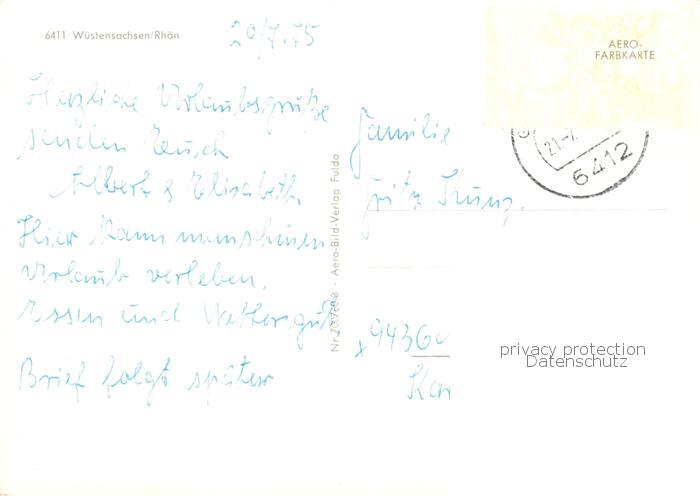 6411 Wüstensachsen/Rhön
20/7.75
AERO-
FARBKARTE
Herzliche Urlaubsgrüße
senden Euch
Albert & Elisabeth.
Hier kann man schönen
Urlaub verleben.
Essen und Wetter gut.
Brief folgt später
Aero-Bild-Verlag Fulda
21.-7.
6412
Familie
Fritz Kunz.
9436
privacy protection
Datenschutz